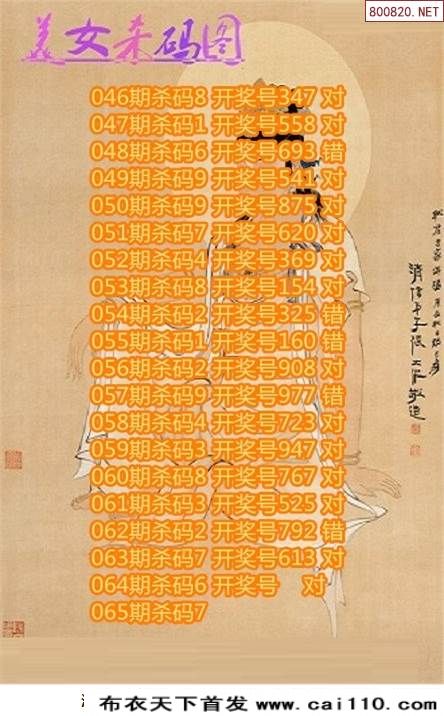 800820.NET
美女杀码图
046期杀码8 开奖号347 对
047期杀码1 开奖号558 对
048期杀码6 开奖号693 错
049期杀码9 开奖号541 对
050期杀码9 开奖号875 对
051期杀码7 开奖号620 对
052期杀码4 开奖号369 对
053期杀码8 开奖号154 对
054期杀码2 开奖号325 错
055期杀码1 开奖号160 错
056期杀码2 开奖号908 对
057期杀码9 开奖号977 错
058期杀码4 开奖号723 对
059期杀码3 开奖号947 对
060期杀码8 开奖号767 对
061期杀码3 开奖号525 对
062期杀码2 开奖号792 错
063期杀码7 开奖号613 对
064期杀码6 开奖号 对
065期杀码7
布衣天下首发 www.cai110.com